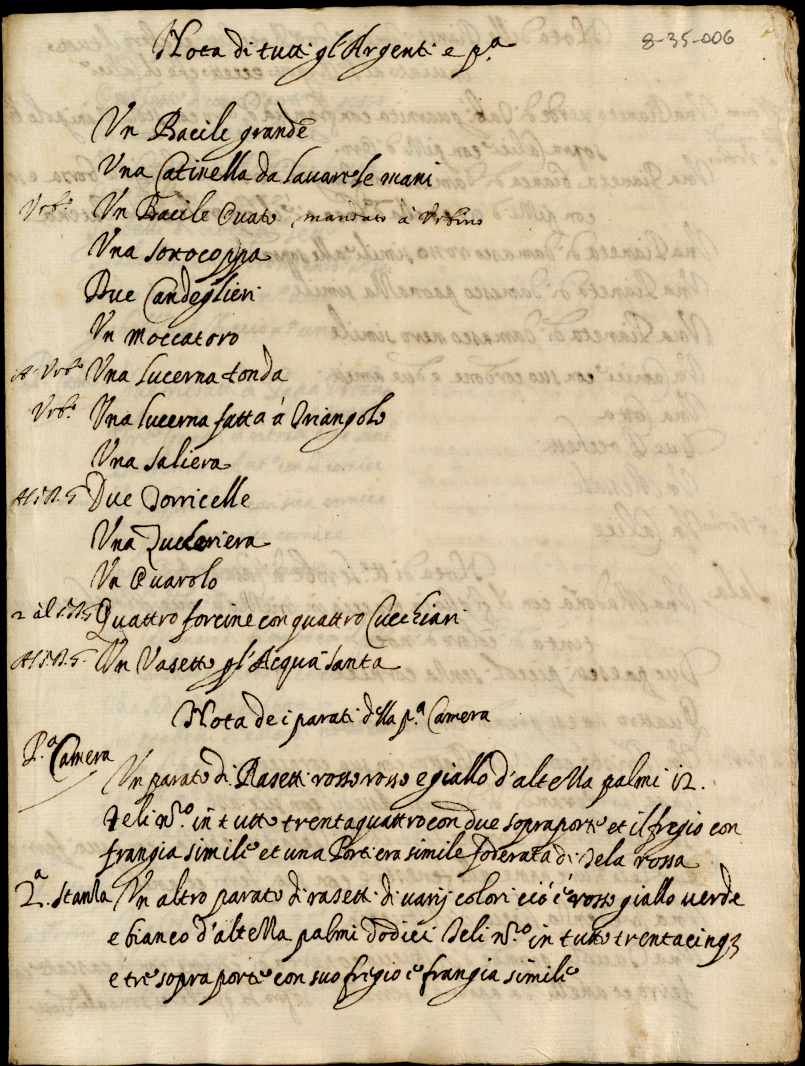 8-35-006
Nota di tutti gl'Argenti e p.a
Un Bacile grande
Una Catinella da lavarsi le mani
Urb.o Un Bacile Ovato mandato à Urbino
Una sottocoppa
Due Candeglieri
Un moccatoro
A Urb.o Una lucerna tonda
Urb.o Una lucerna fatta à Triangolo
Una saliera
Due Torricelle
Una Zuccheriera
Un Ovarolo
Quattro forcine con quattro Cucchiari
Un Vasetto p l'Acqua Santa
Nota de i parati della p.a Camera
P.a Camera
Un parato di Rasetti rosso rosso e giallo d'altezza palmi 12.
Teli n.o in tutto trentaquattro con due sopraporte et il fregio con
frangia simile et una Portiera simile foderata di Tela rossa
2.a Stanza Un altro parato di rasetti di varij colori cioè rosso giallo verde
e bianco d'altezza palmi dodici Teli n.o in tutto trentacinq3
e tre sopraporte con suo fregio e frangia simile